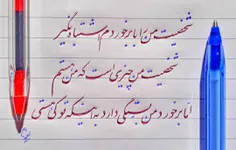 شخصیت من را با برخوردم اشتباه نگیر
شخصیت من چیزی است که من هستم
اما برخورد من بستگی دارد به اینکه تو کی هستی